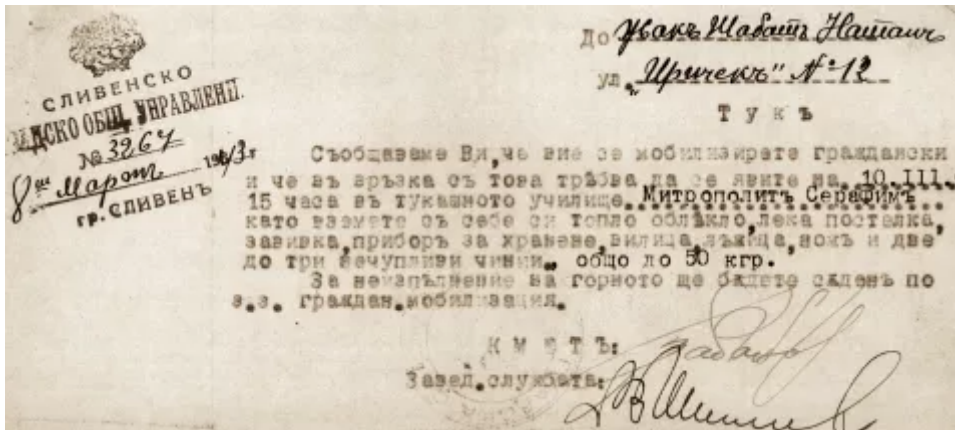 СЛИВЕНСКО
ГРАДСКО ОБЩ. УПРАВЛЕНИ
№ 3267
8 Мартъ 1943 г
гр. СЛИВЕНЪ
До Исакъ Шабатъ Натанъ
ул. „Иричекъ" № 12
ТУКЪ
Съобщаваме Ви, че вие се мобилизирате граждански
и че въ връзка съ това трѣбва да се явите на 10.III.
15 часа въ тукашното училище Митрополитъ Серафимъ
като вземете съ себе си топло облѣкло, лека постелка,
завивка, приборъ за хранене, вилица, лъжица, ножъ и две
до три нечупливи чинии. общо до 50 кгр.
За неизпълнение на горното ще бѫдете сѫденъ по
з.з. граждан. мобилизация.
КМЕТЪ:
Завед. службата: